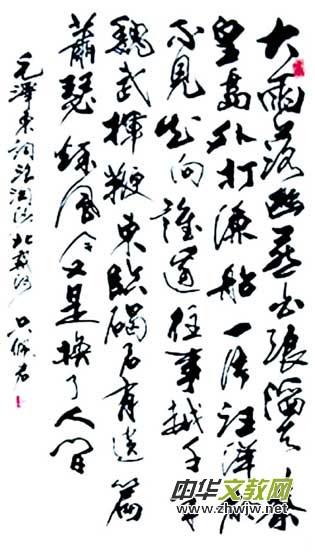 大雨落幽燕白浪滔天秦
皇島外打漁船一片汪洋都
不見知向誰邊往事越千年
魏武揮鞭東臨碣石有遺篇
蕭瑟秋風今又是換了人间
毛澤東詞浪淘沙北戴河
中华文教网
www.zhwjw.net